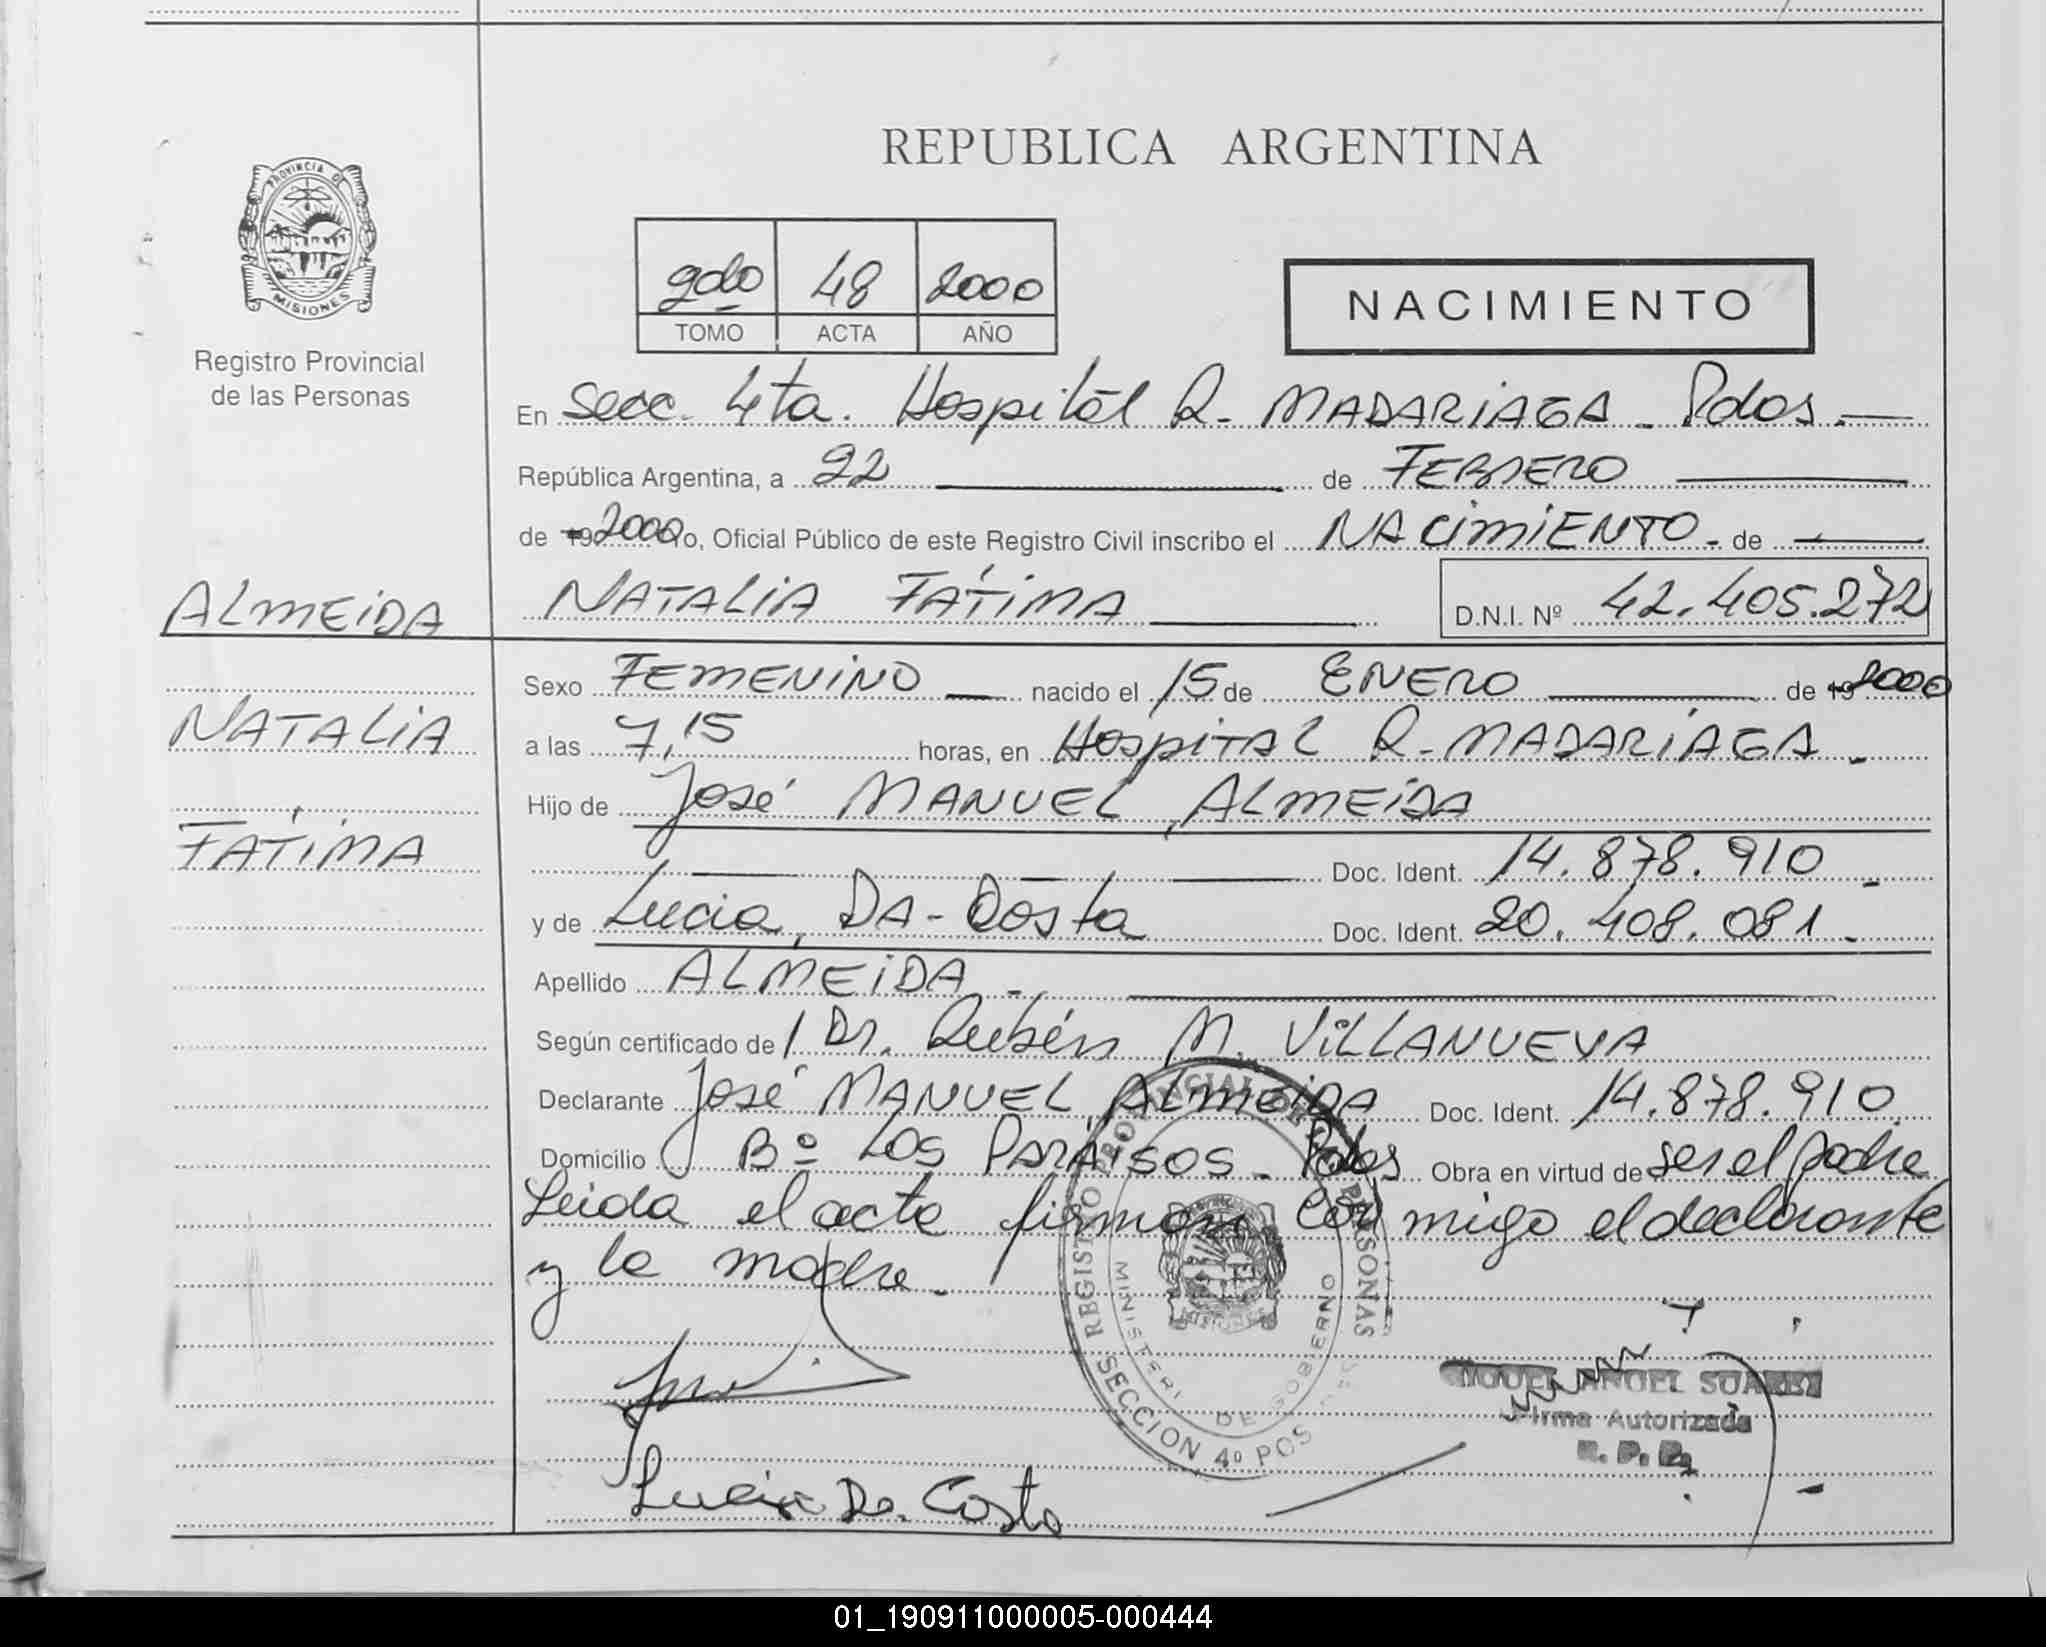 REPUBLICA ARGENTINA
PROVINCIA DE
MISIONES
Registro Provincial
de las Personas
2do 48 2000
TOMO ACTA AÑO
NACIMIENTO
En Secc. 4ta. Hospital R. MADARIAGA - Pdas. —
República Argentina, a 22 — de FEBRERO —
de 19 2000 Yo, Oficial Público de este Registro Civil inscribo el NACIMIENTO - de —
ALMEIDA
NATALIA FÁTIMA — D.N.I. Nº 42.405.272
Sexo FEMENINO — nacido el 15 de ENERO — de 19 2000
NATALIA
a las 7,15 horas, en HOSPITAL R. MADARIAGA -
Hijo de José MANUEL ALMEIDA
FÁTIMA
— Doc. Ident. 14.878.910 -
y de Lucia, DA-Costa Doc. Ident. 20.408.081 -
Apellido ALMEIDA - —
Según certificado de / Dr. Rubén M. VILLANUEVA
Declarante José MANUEL ALMEIDA Doc. Ident. 14.878.910
Domicilio Bº LOS PARAÍSOS - Pdas Obra en virtud de ser el padre
Leida el acta firman con migo el declarante
y la madre.
REGISTRO PROVINCIAL DE LAS PERSONAS
MINISTERI DE GOBIERNO
SECCION 4º POS
MIGUEL ANGEL SUAREZ
Firma Autorizada
R. P. P.
Lucia Da. Costa
01_190911000005-000444